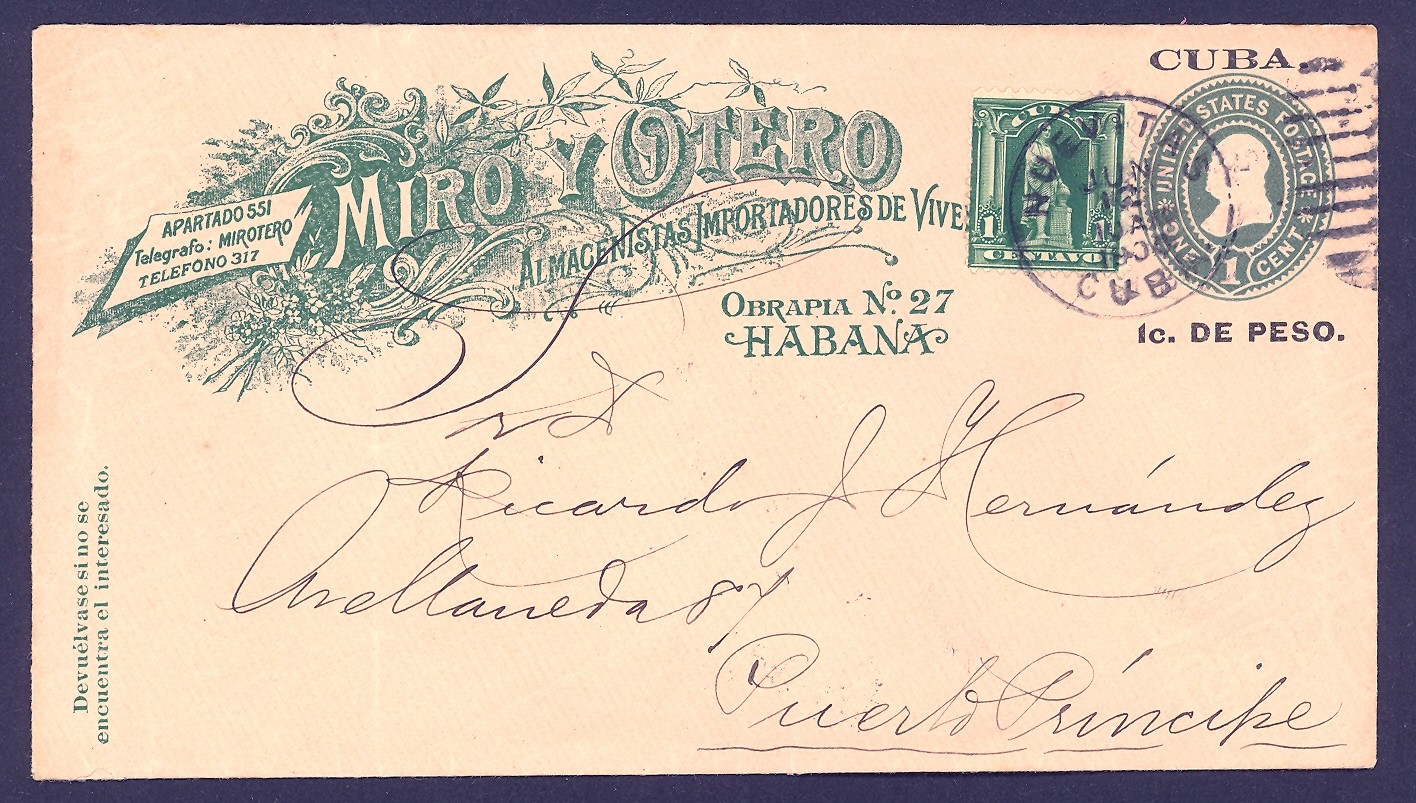 CUBA.
UNITED STATES POSTAGE
ONE CENT
1
1c. DE PESO.
CUBA
1 1
CENTAVO
NUEVITAS
JUN
CUBA
MIRO Y OTERO
APARTADO 551
Telegrafo: MIROTERO
TELEFONO 317
ALMACENISTAS IMPORTADORES DE VIVE
OBRAPIA Nº 27
HABANA
Sr D
Ricardo J Hernández
Avellaneda 87
Puerto Príncipe
Devuélvase si no se
encuentra el interesado.